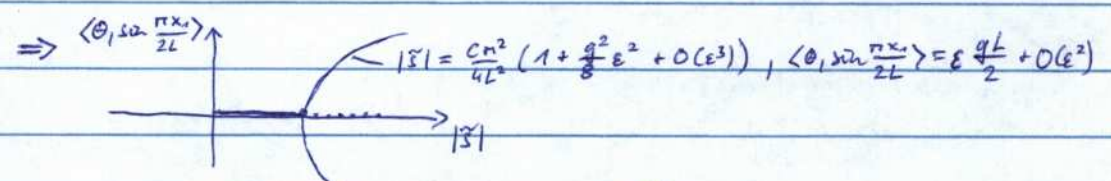 ⇒ ⟨θ, sin πx₁/2L⟩
|ξ̃| = Cπ²/4L² (1 + g²/8 ε² + O(ε³)) , ⟨θ, sin πx₁/2L⟩ = ε gL/2 + O(ε²)
|ξ̃|